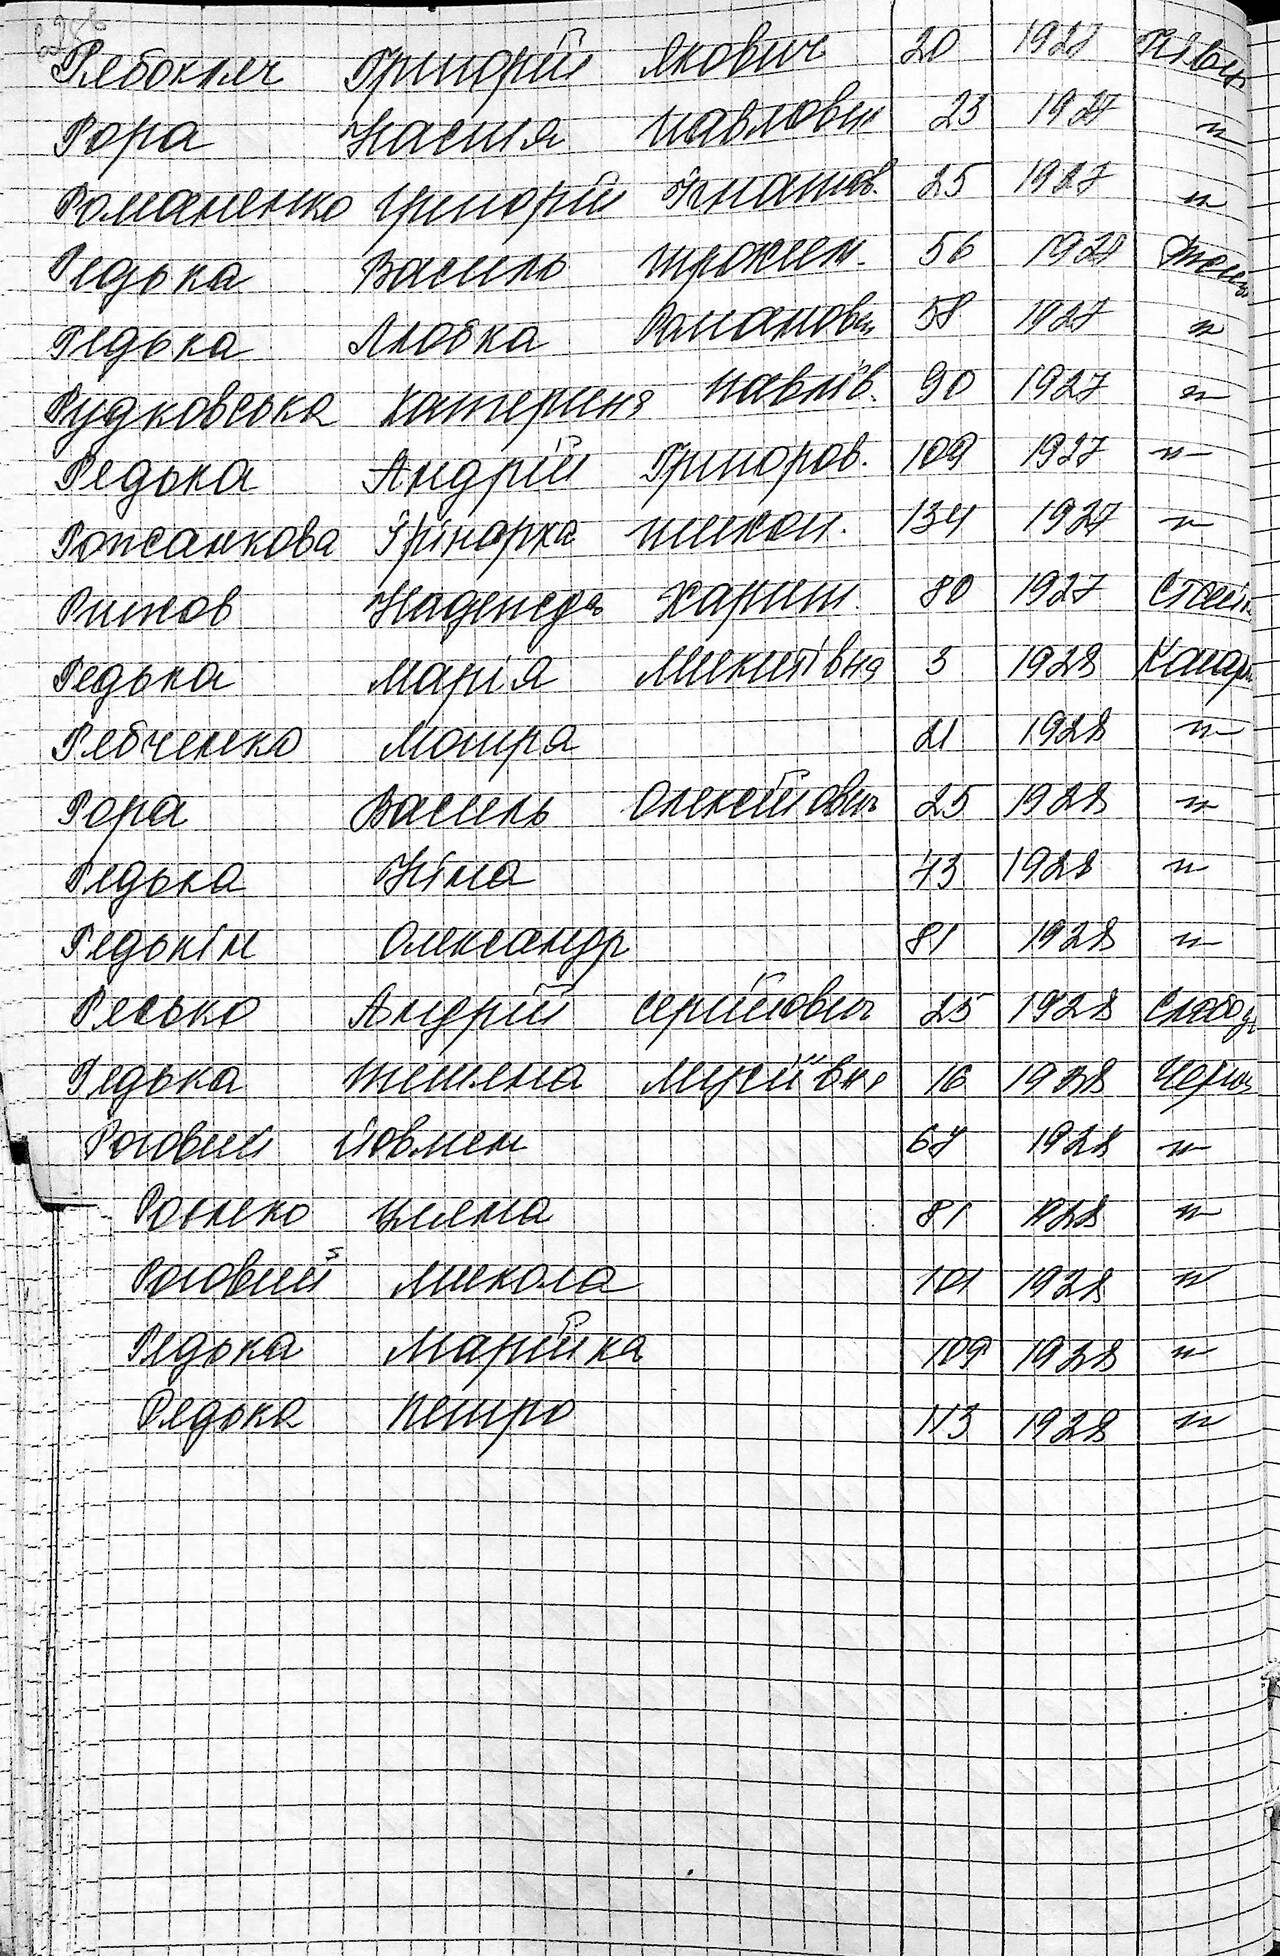 Рябокляч Григорій Якович 20 1927
Рора Настя Павлович 23 1927 "
Романенко Григорій Ігнатов. 25 1927 "
Редька Василь Трохим. 56 1927
Редька Любка Романовн 58 1927 "
Рудковська Катерина Павлів. 90 1927 "
Редька Андрій Григоров. 109 1927 "
134 1927 "
Рижов Надежда Харит. 80 1927
Редька Марія Микитівна 3 1928
Рябченко Мотря 21 1928 "
Рора Василь Олексійович 25 1928 "
Редька Ніна 43 1928 "
Редькін Олександр 81 1928 "
Ресько Андрій Сергійович 25 1928 Слобод
Редька Тетяна Мусіївна 16 1928
Роговий 67 1928 "
Уляна 81 1928 "
Роговий Микола 101 1928 "
Редька Марійка 109 1928 "
Редька Петро 113 1928 "